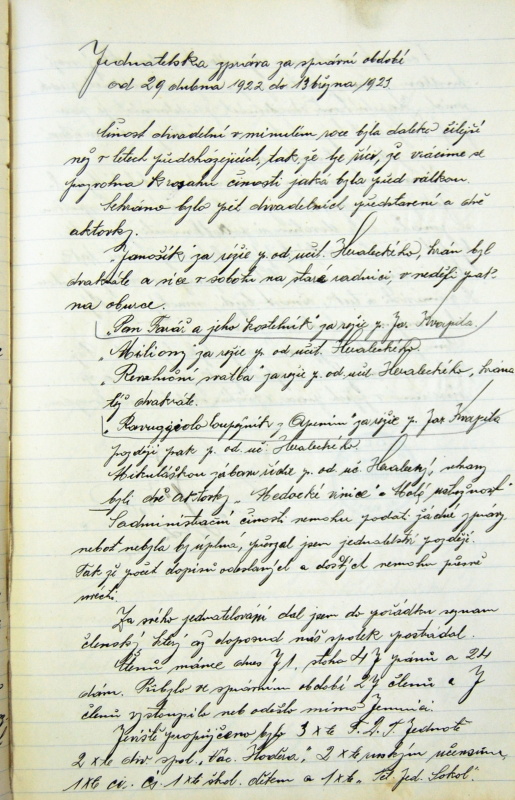 Jednatelska zpráva za správní období
od 29 dubna 1922 do 13 března 1923
Činost divadelní v minulém roce byla daleko čilejší
než v létech předcházejících, tak, že lze říci, že vracíme se
pozvolna k rozsahu činosti jaká byla před válkou.
Sehráno bylo pět divadelních představení a dvě
aktovky.
"Janošík" za režie p. od. učit. Heraleckého, hrán byl
dvakráte a sice v sobotu na staré radnici, v neděli pak
na oburce.
"Pan Farář a jeho kostelník" za režie p. Jar. Kvapila.
Miliony za režie p. od. učit. Heraleckého.
"Revoluční svatba" za režie p. od. učit Heraleckého, hrána
též dvakráte.
"Ravuggiolo loupežník z Apenin" za režie p. Jar Kvapila
později pak p. od. uč. Heraleckého.
Mikulášskou zábavu řídil p. od. uč. Heralecký, hrány
byly dvě aktovky "Medocké vinice" a "Malé
S administrační činosti nemohu podat žádné zprávy,
neboť nebyla by úplná, převzal jsem jednatelství později.
Tak že počet dopisů odeslaných a došlých nemohu přesně
určiti.
Za mého jednatelování dal jsem do pořádku seznam
členský, který až doposud náš spolek postrádal.
Členů máme dnes 71, z toho 47 pánů a 24
dám. Přibylo ve správním období 27 členů a 7
členů vystoupilo neb odešlo mimo Jemnici.
Jeviště propůjčeno bylo 3 x te F. D. T. Jednotě
2 x te div. spol. "Vác. Hoděra", 2 x te
1 x te ci. čs. 1 x te škol. dětem a 1 x te "Těl. Jed. Sokol".